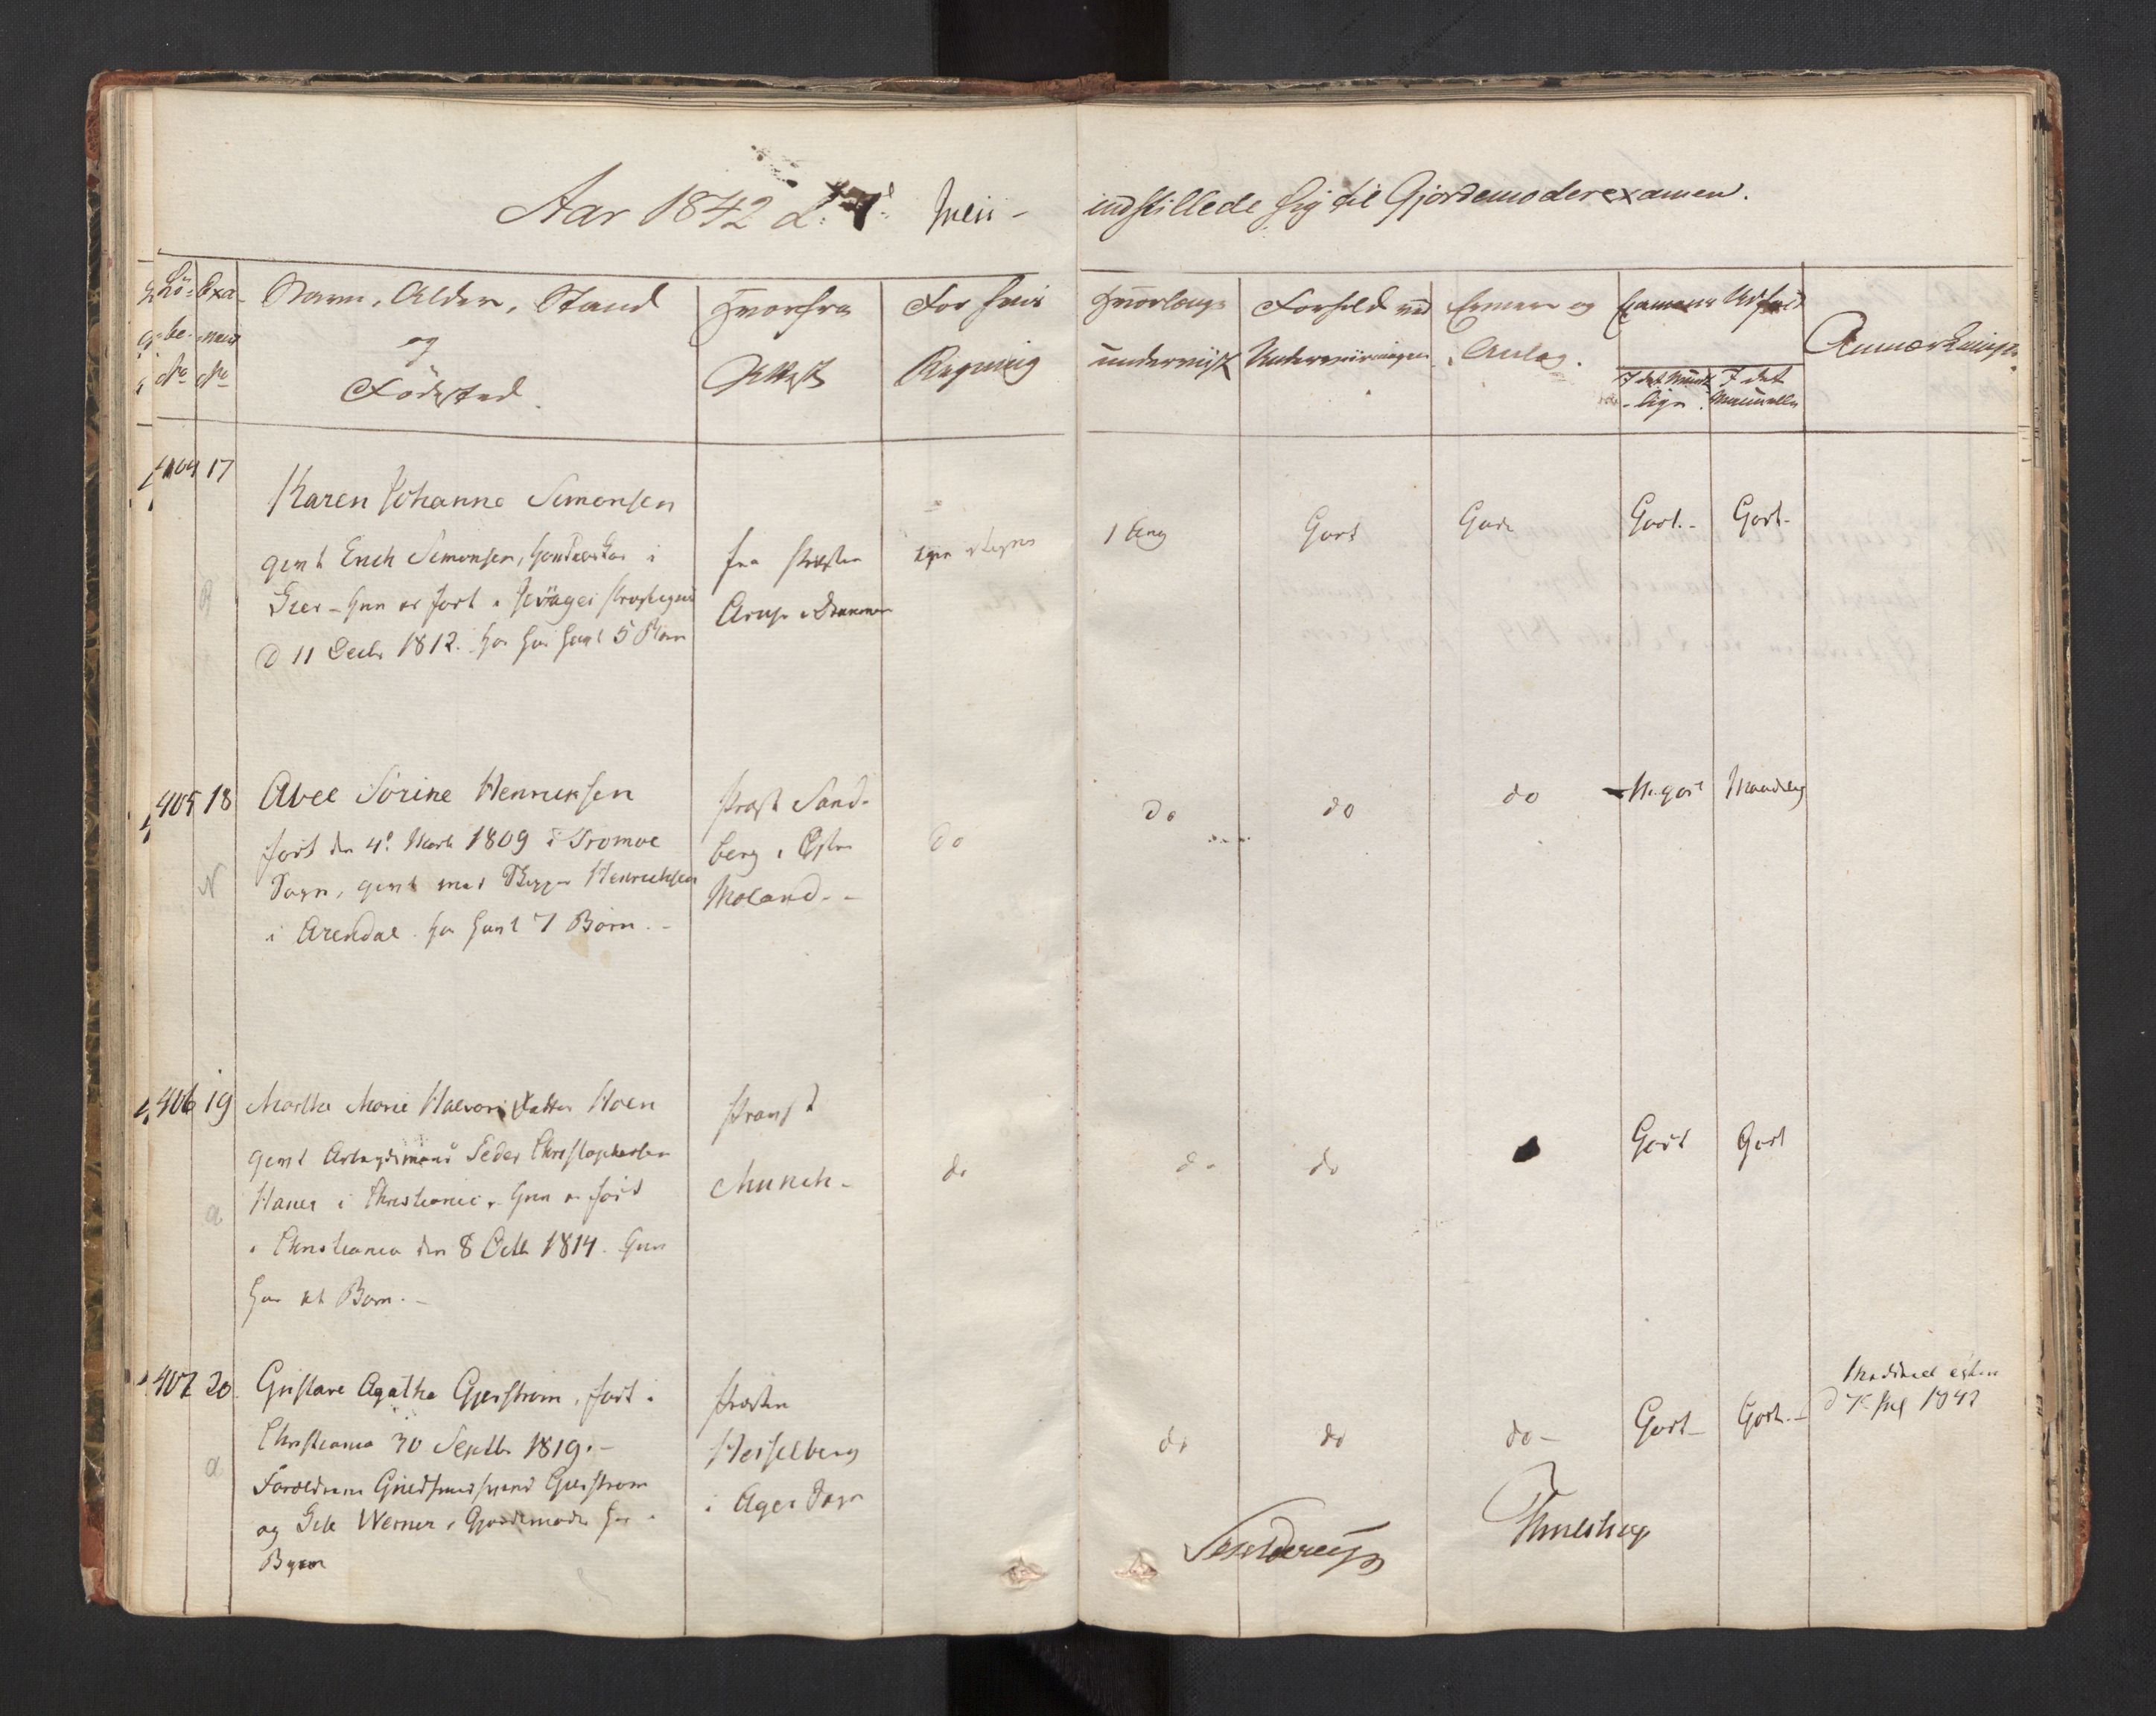 Aar 1842 d. 7d Juli - indstillede sig til Gjordemoderexamen.
Lö- be- No
Exa- mens No
Navn, Alder, Stand
og
Födested.
Hvorfra
Attest
For hvis
Regning
Hvorlænge
underviist
Forhold ved
Underviisningen
Evner og
Anlæg.
Examens Udfald
I det Mundt-
lige
I det
Manuelle
Anmærkninger.
404 17
Karen Johanne Simensen
givt Erich Simensen,
Lier - Hun er født i Præstegield
d 11 Decbr 1812. har 5 Børn
fra Præsten
Arup i Drammen
egen Regning
1 Gang
Godt
Gode
Godt -
Godt -
405 18
Abel Sörine Henriksen
født den 4de Marts 1809 i Tromøe
Sogn, givt med Skipper Henriksen
i Arendal. har havt 7 Børn. -
Provst Sand-
berg i Østre
Moland. -
do
do
do
do
M. godt
Maadelig
406 19
Marthe Marie Halvorsdatter Hoen
givt Arbeydsmand Peder Christophersen
i Christiania. Hun er født
i Christiania den 8 Octb 1814. Hun
har et Barn. -
Provst
Munch -
do
do
do
Godt
Godt
407 20
Gustave Agathe Gjerstrøm, født i
Christiania 30 Septbr 1819. -
Forældrene Gjerstrøm
og Werner, Gjordemoder her i
Byen
Præsten
Hesselberg
i Ager Sogn
do
do
do -
Godt -
Godt. -
d 7de Jul 1842
a
N
a
Thulstrup